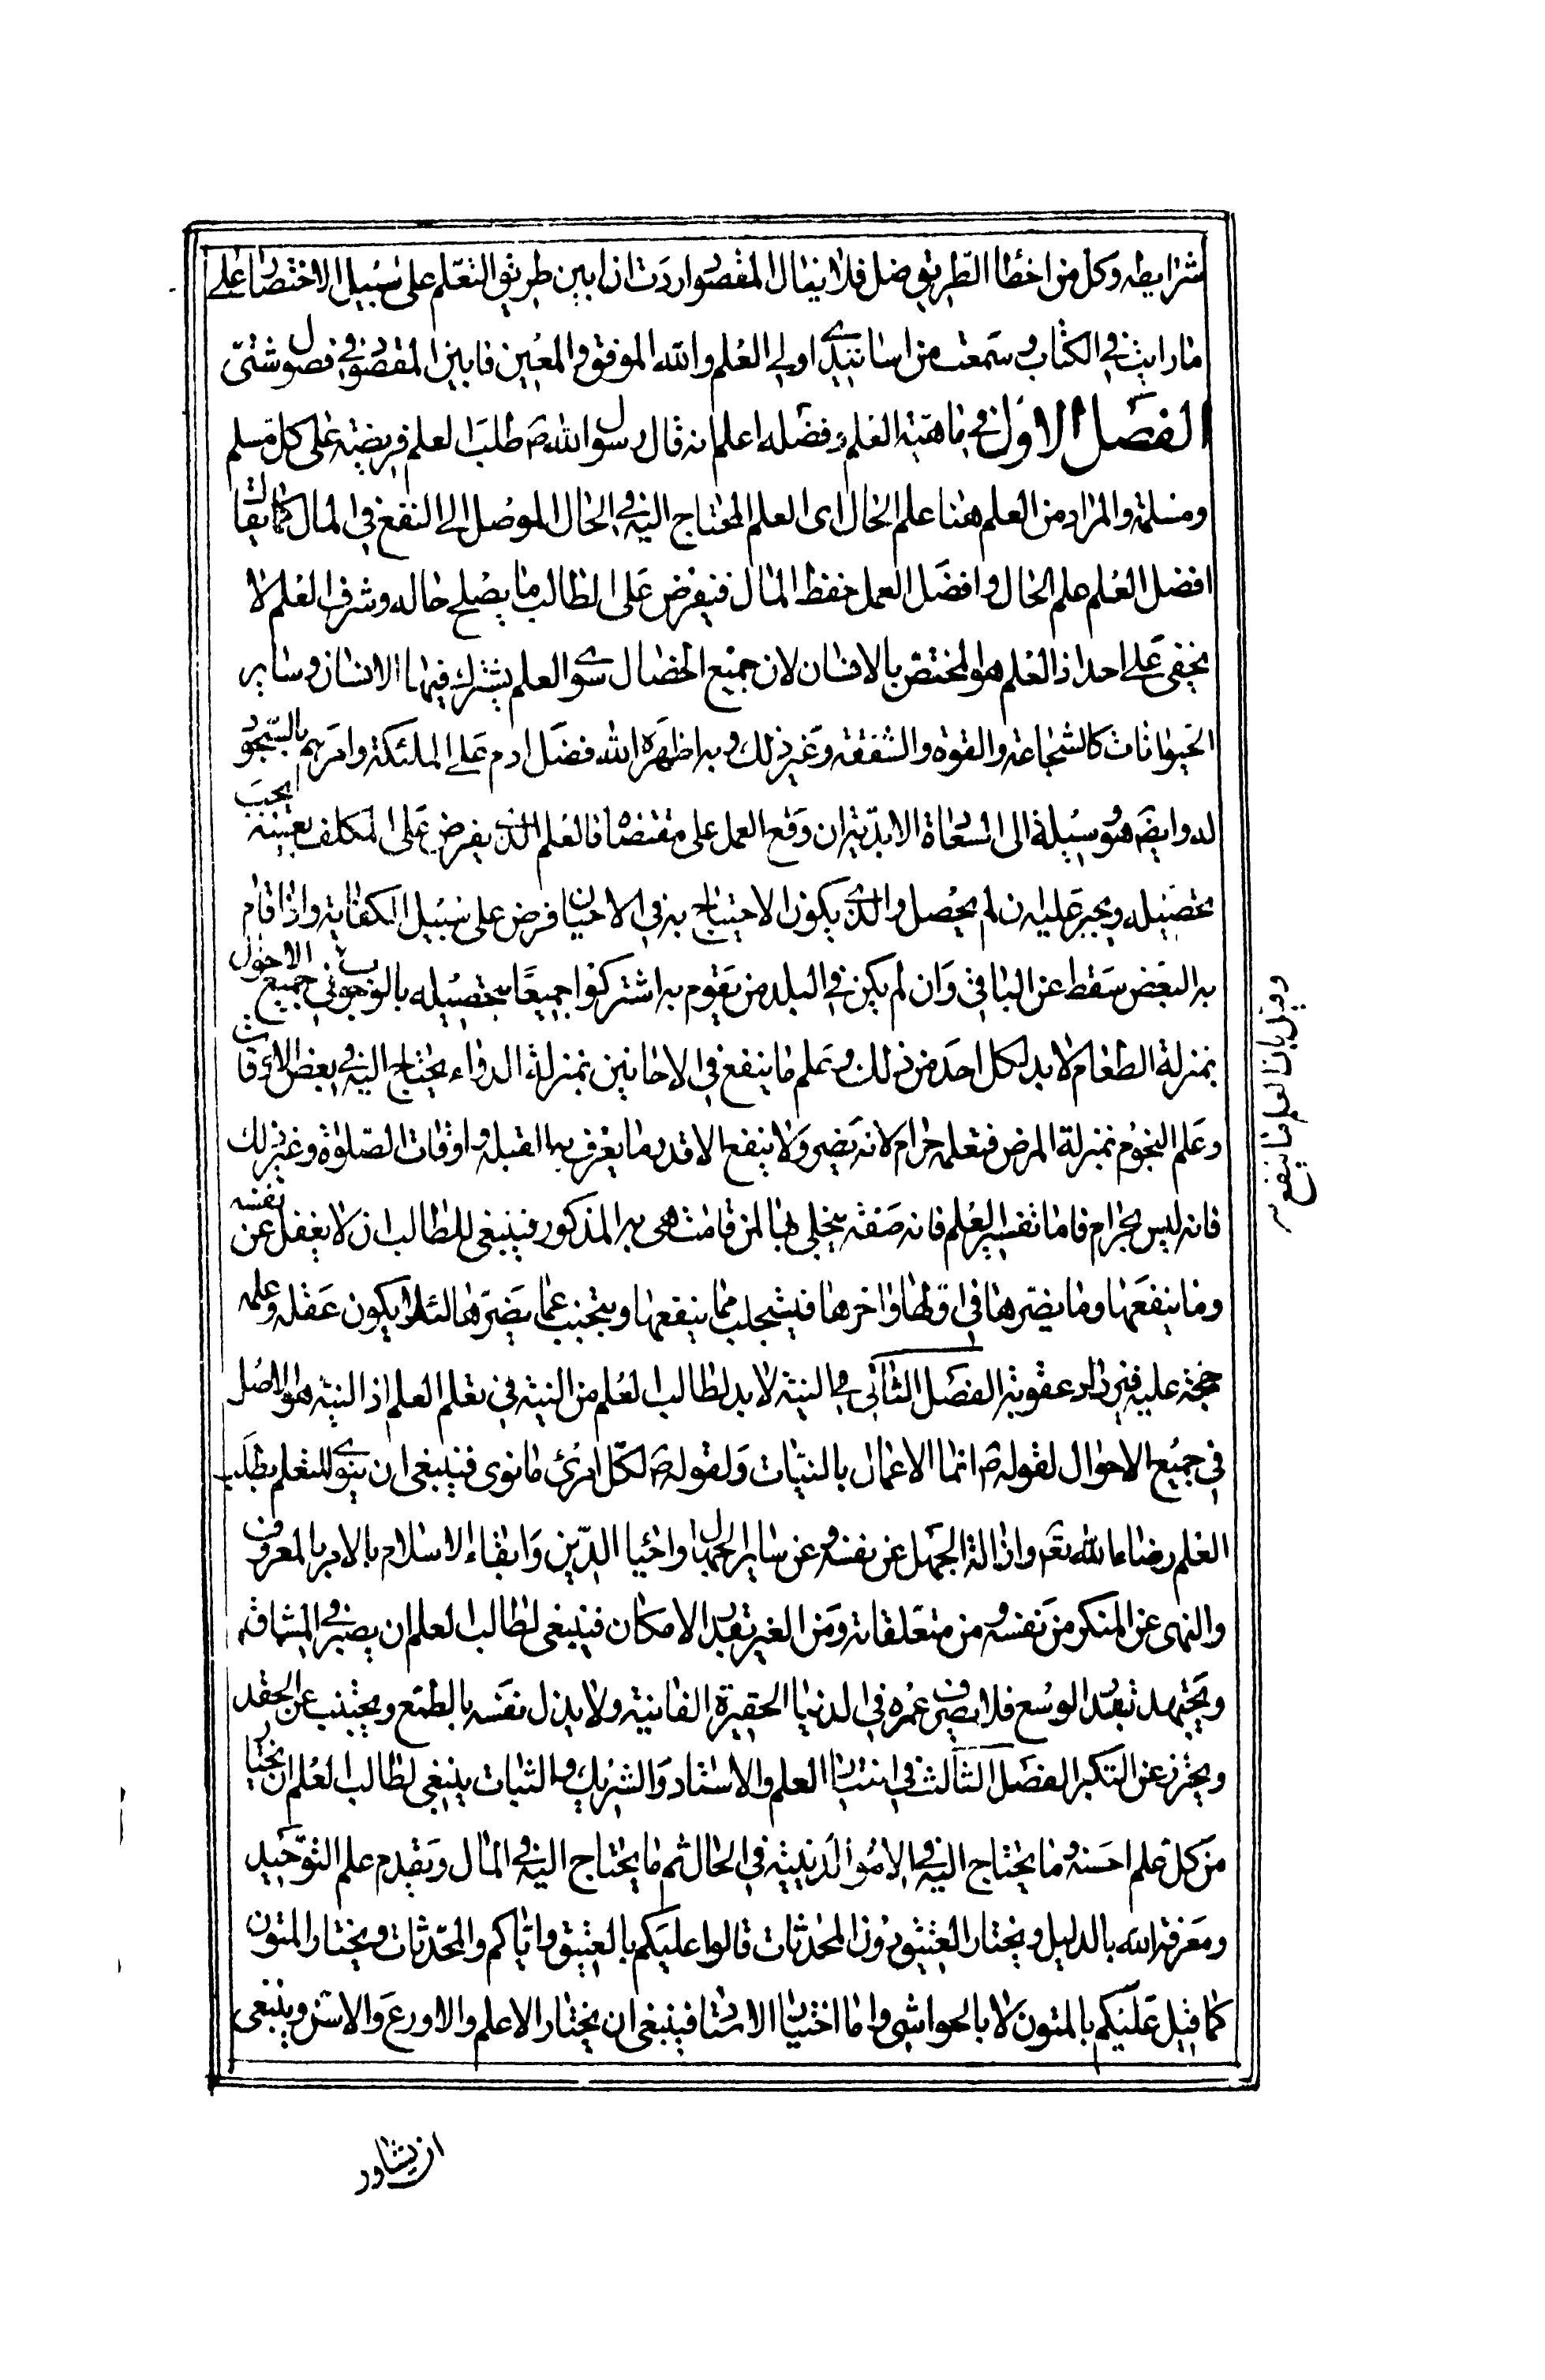 شرايطه وكل من اخطا الطريق ضل فلا ينال المقصود اردت ان ابين طريق التعلم على سبيل الاختصار على
ما رايت في الكتاب و سمعت من اساتيدي اولي العلم والله الموفق والمعين فابين المقصود في فصول شتى
الفصل الاول في ماهية العلم و فضله اعلم انه قال رسول الله ص طلب العلم فريضة على كل مسلم
ومسلمة والمراد من العلم هنا علم الحال اى العلم المحتاج اليه في الحال الموصل الى النفع في المال كما يقال
افضل العلم علم الحال و افضل العمل حفظ المال فيفرض على الطالب ما يصلح حاله وشرف العلم لا
يخفى على احد اذ العلم هو المختص بالانسان لان جميع الخصال سوى العلم يشترك فيها الانسان و ساير
الحيوانات كالشجاعة والقوة والشفقة وغير ذلك و به اظهره الله فضل ادم على الملئكة وامرهم بالسجود
له وايضا هو وسيلة الى السعادة الابدية ان وقع العمل على مقتضاه فالعلم الذي يفرض على المكلف بعينه يجب
تحصيله ويجبر عليه ان لم يحصل والذي يكون الاحتياج به في الاحيان فرض على سبيل الكفاية واذا قام
به البعض سقط عن الباقي وان لم يكن في البلد من يقوم به اشتركوا جميعا بتحصيله بالوجوب في جميع الاحوال
بمنزلة الطعام لا بد لكل احد من ذلك وعلم ما ينفع في الاحايين بمنزلة الدواء يحتاج اليه في بعض الاوقات
وعلم النجوم بمنزلة المرض فتعلمه حرام لانه يضر ولا ينفع الا قدر ما يعرف به القبلة و اوقات الصلوة وغير ذلك
فانه ليس بحرام فاما تفسير العلم فانه صفة يتجلى بها لمن قامت هى به المذكور فينبغي للطالب ان لا يغفل عن نفسه
وما ينفعها وما يضرها في اولها واخرها فيستجلب مما ينفعها ويتجنب عما يضرها لئلا يكون عقله وعلمه
حجة عليه فيزداد عقوبة الفصل الثاني في النية لا بد لطالب العلم من النية في تعلم العلم اذ النية هو الاصل
في جميع الاحوال لقوله ص انما الاعمال بالنيات ولقوله ص لكل امرئ ما نوى فينبغي ان ينوي المتعلم بطلب
العلم رضاء الله تعم وازالة الجهل عن نفسه وعن ساير الجهال واحياء الدين وابقاء الاسلام بالامر بالمعروف
والنهى عن المنكر من نفسه ومن متعلقاته ومن الغير بقدر الامكان فينبغي لطالب العلم ان يصبر في المشاقة
ويجتهد بقدر الوسع فلا يصرف عمره في الدنيا الحقيرة الفانية ولا يذل نفسه بالطمع ويجتنب عن الحقد
ويحترز عن التكبر الفصل الثالث في اختيار العلم والاستاد والشريك والثبات ينبغي لطالب العلم ان يختار
من كل علم احسنه وما يحتاج اليه في الامور الدينية في الحال ثم ما يحتاج اليه في المال ويقدم علم التوحيد
ومعرفة الله بالدليل و يختار العتيق دون المحدثات قالوا عليكم بالعتيق واياكم والمحدثات ويختار المتون
كما قيل عليكم بالمتون لا بالحواشي واما اختيار الاستاد فينبغي ان يختار الاعلم والاورع والاسن وينبغى
وقيل بان العلم ما ينفع
ان يشاور